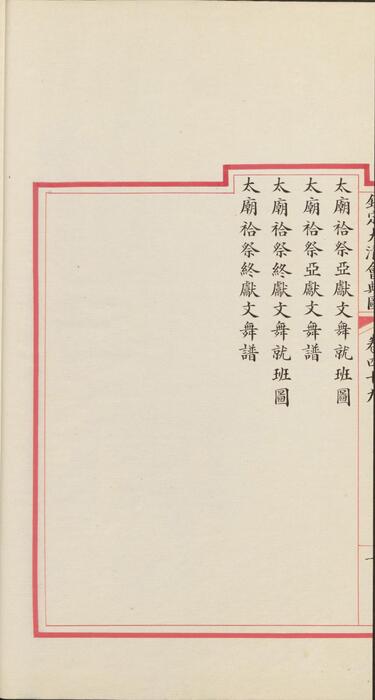 欽定大清會典圖 卷四十九 一
太廟祫祭亞獻文舞就班圖
太廟祫祭亞獻文舞譜
太廟祫祭終獻文舞就班圖
太廟祫祭終獻文舞譜